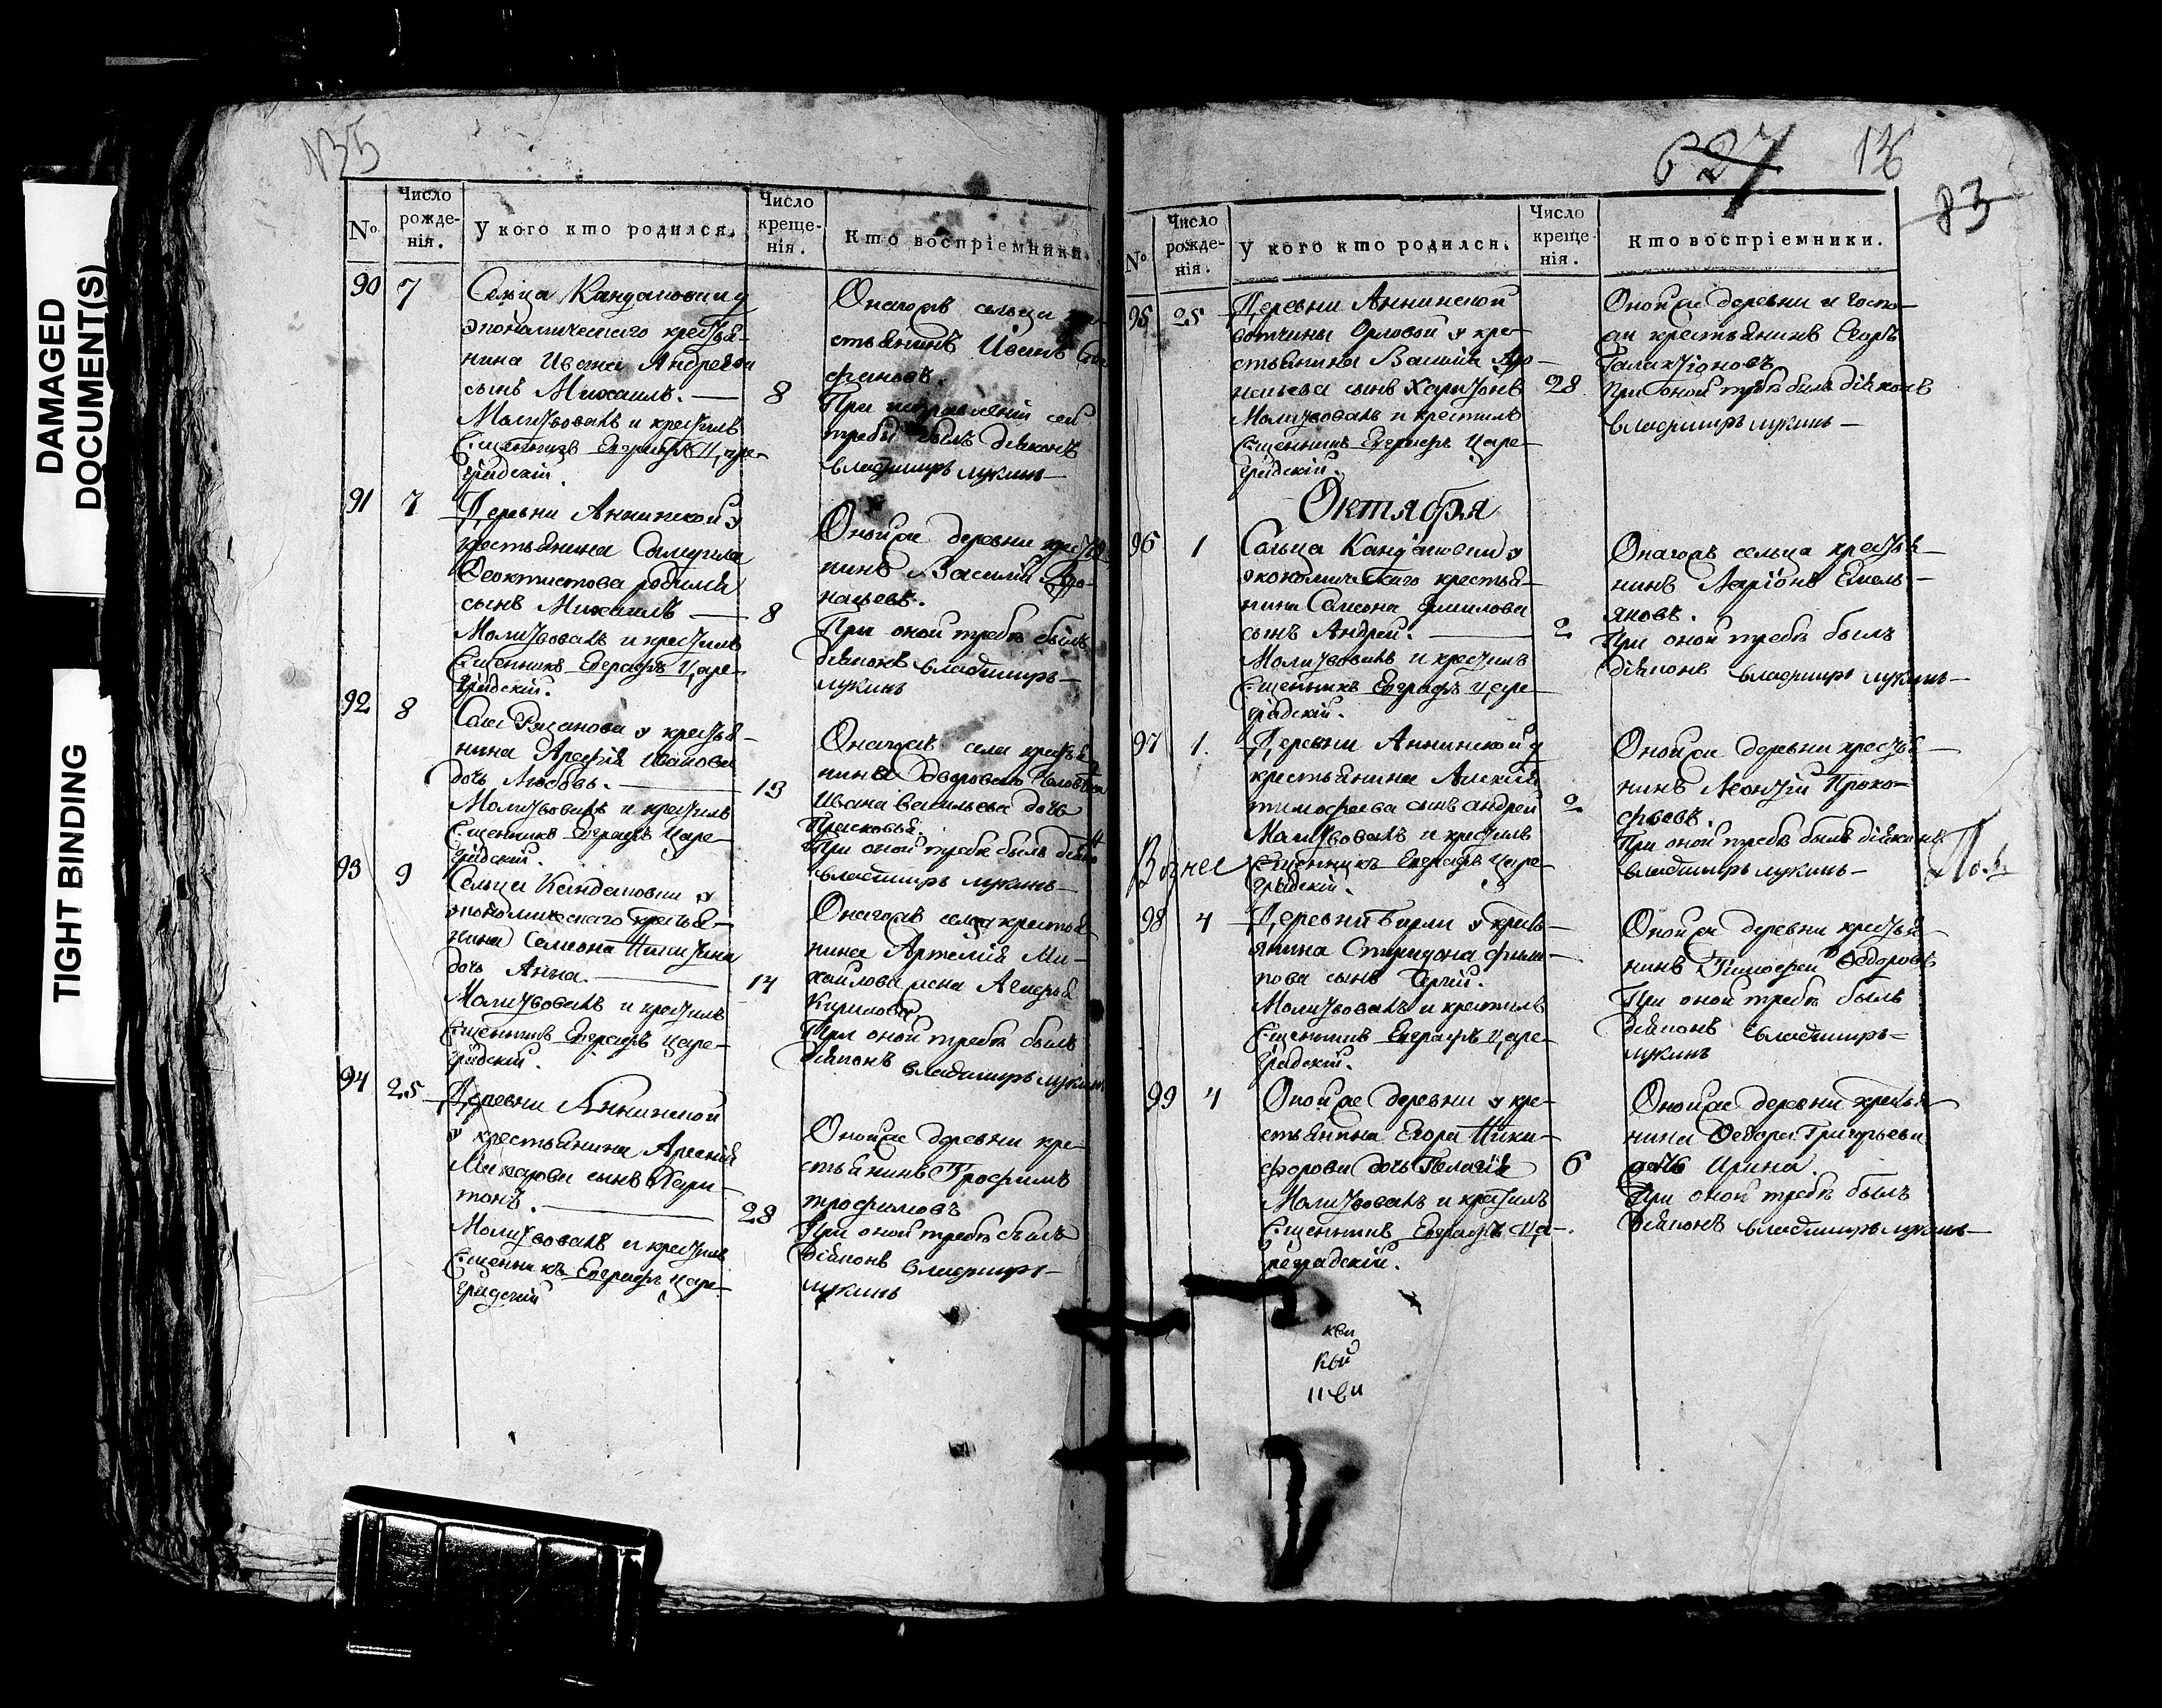 DAMAGED
DOCUMENT(S)
TIGHT BINDING
№35
№
Число рожде-нія.
У кого кто родился.
Число креще-нія.
Кто воспріемники.
90 7
Сельца Кандаковки у
экономическаго крестья-
нина Ивана Андреева
сынъ Михаилъ. — 8
Молитвовалъ и крестилъ
Священникъ Евграфъ Царе-
градскій.
Онагожъ сельца
стьянинъ Иванъ
фановъ.
При исправленіи сей
требы былъ діяконъ
владимиръ лукинъ —
91 7
Деревни Аннинской у
крестьянина Самуила
Феоктистова родился
сынъ Михаилъ — 8
Молитвовалъ и крестилъ
Священникъ Евграфъ Царе-
градскій.
Онойже деревни кресть
нинъ Василій
насьевъ.
При оной требѣ былъ
діяконъ владимиръ —
лукинъ
92 8
Села Рязанова у крестья-
нина Арефія Иванова
дочь Любовь. — 13
Молитвовалъ и крестилъ
Священникъ Евграфъ Царе-
градскій.
Онагожъ села крестья
нина дворового человѣка
Ивана васильева дочь
Прасковья.
При оной требѣ былъ діяко
владимиръ лукинъ —
93 9
Сельца Кандаковки у
экономическаго крестья-
нина Самсона Никитина
дочь Анна. — 14
Молитвовалъ и крестилъ
Священникъ Евграфъ Царе-
градскій.
Онагожъ сельца крестья
нина Артемія Ми-
хаилова жена
Кирилова
При оной требѣ былъ
діяконъ владимиръ лукинъ
94 25
Деревни Аннинской
у крестьянина Арсенія
Макарова сынъ Хари-
тонъ. — 28
Молитвовалъ и крестилъ
Священникъ Евграфъ Царе-
градскій
Онойже деревни кре-
стьянинъ Трофимъ
трофимовъ
При оной требѣ былъ
діяконъ владимиръ —
лукинъ
627 136
83
№
Число рожде-нія.
У кого кто родился.
Число креще-нія.
Кто воспріемники.
95 25
Деревни Аннинской
вотчины Орловой у кре-
стьянина Василія
насьева сынъ Харитонъ 28
Молитвовалъ и крестилъ
Священникъ Евграфъ Царе-
градскій.
Онойже деревни и госпо-
жи крестьянинъ Егоръ
Галактіоновъ
При оной требѣ былъ діяконъ
владимиръ лукинъ —
Октября
96 1
Сельца Кандаковки у
экономическаго крестья-
нина Самсона Ермилова
сынъ Андрей. — 2
Молитвовалъ и крестилъ
Священникъ Евграфъ Царе-
градскій.
Онагожъ сельца крестья-
нинъ Ларіонъ Емель-
яновъ.
При оной требѣ былъ
діяконъ владимиръ лукинъ —
97 1.
Деревни Аннинской у
крестьянина Алексія
тимофеева сынъ андрей 2
Молитвовалъ и крестилъ
Священникъ Евграфъ Царе-
градскій.
Онойже деревни крестья-
нинъ Леонтій Проко-
фьевъ.
При оной требѣ былъ діяконъ
владимиръ лукинъ —
98 4
Деревни Бирли у кресть-
янина Спиридона фили-
пова сынъ Сергій.
Молитвовалъ и крестилъ
Священникъ Евграфъ Царе-
градскій.
Онойже деревни крестья-
нинъ Тимофей Федоровъ
При оной требѣ былъ
діяконъ владимиръ —
лукинъ
99 4
Онойже деревни у кре-
стьянина Егора Ники-
форова дочь Пелагія 6
Молитвовалъ и крестилъ
Священникъ Евграфъ Ца-
реградскій.
Онойже деревни крестья
нина Федора Григорьева
дочь Ирина.
При оной требѣ былъ
діяконъ владимиръ лукинъ —